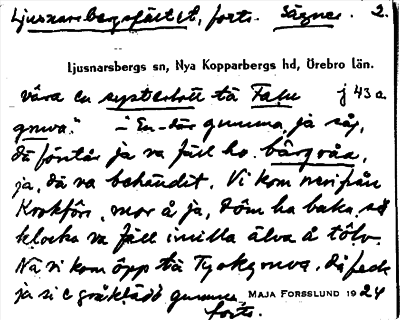 Ljusnarsbergsfästet, forts. Sägner. 2.
Ljusnarsbergs sn, Nya Kopparbergs hd, Örebro län.
våra en tä Falu j 43 a
gruva." – "En där gumma ja såg,
dä förstår ja va fäll ho bärgråa,
ja, dä va behändit. Vi kom neri från
Krokfors, mor å ja, döm ha baka, så
klocka va fäll imilla älva å tölv.
Nä vi kom öpp tä gruva, då feck
ja si e gråklädd gumma, MAJA FORSSLUND 1924
forts.